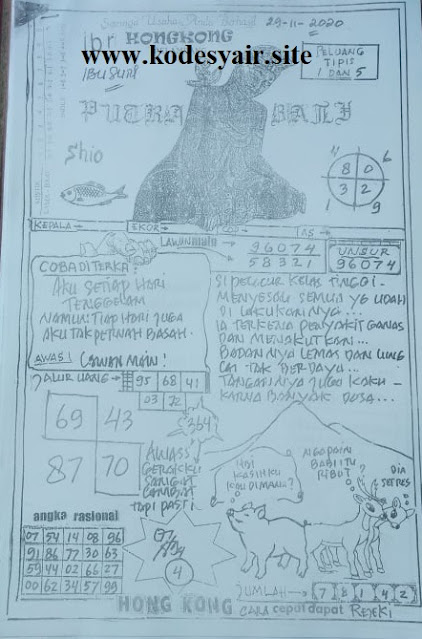 Semoga Usaha Anda Berhasil
29-11-2020
HONGKONG
www.kodesyair.site
PELUANG
TIPIS
1 DAN 5
PUTRA
Shio
11
6
8 0
3 2
1
9
KEPALA→
EKOR→
COP→
AS→
LAWAN MAIN
96074
58321
UNSUR
96074
COBA DITERKA:
AKU SETIAP HARI
TENGGELAM
NAMUN: TIAP HARI JUGA
AKU TAK PERNAH BASAH.
AWAS! LAWAN MAIN!
SI PELUCUR KELAS TINGGI -
MENYESALI SEMUA YG UDAH
DI LAKUKANNYA...
IA TERKENA PENYAKIT GANAS
DAN MENAKUTKAN...
BADANNYA LEMAS DAN
TAK BERDAYA...
TANGANNYA JUGA KAKU -
KARNA BANYAK DOSA...
JALUR UANG→
95 68 41
03 72
364
69 43
87 70
AWASS
GERAKKU
SANGAT
LAMBAT
TAPI PASTI.
HAI
KASIHKU
KAU DIMANA?
NGAPAIN
BABI ITU
RIBUT?
DIA
STRES
angka rasional
07 54 14 08 96
91 86 77 30 63
59 44 02 66 27
00 62 34 57 99
4
JUMLAH→
7 8 1 4 2
HONG KONG
CARA cepat dapat REJEKI